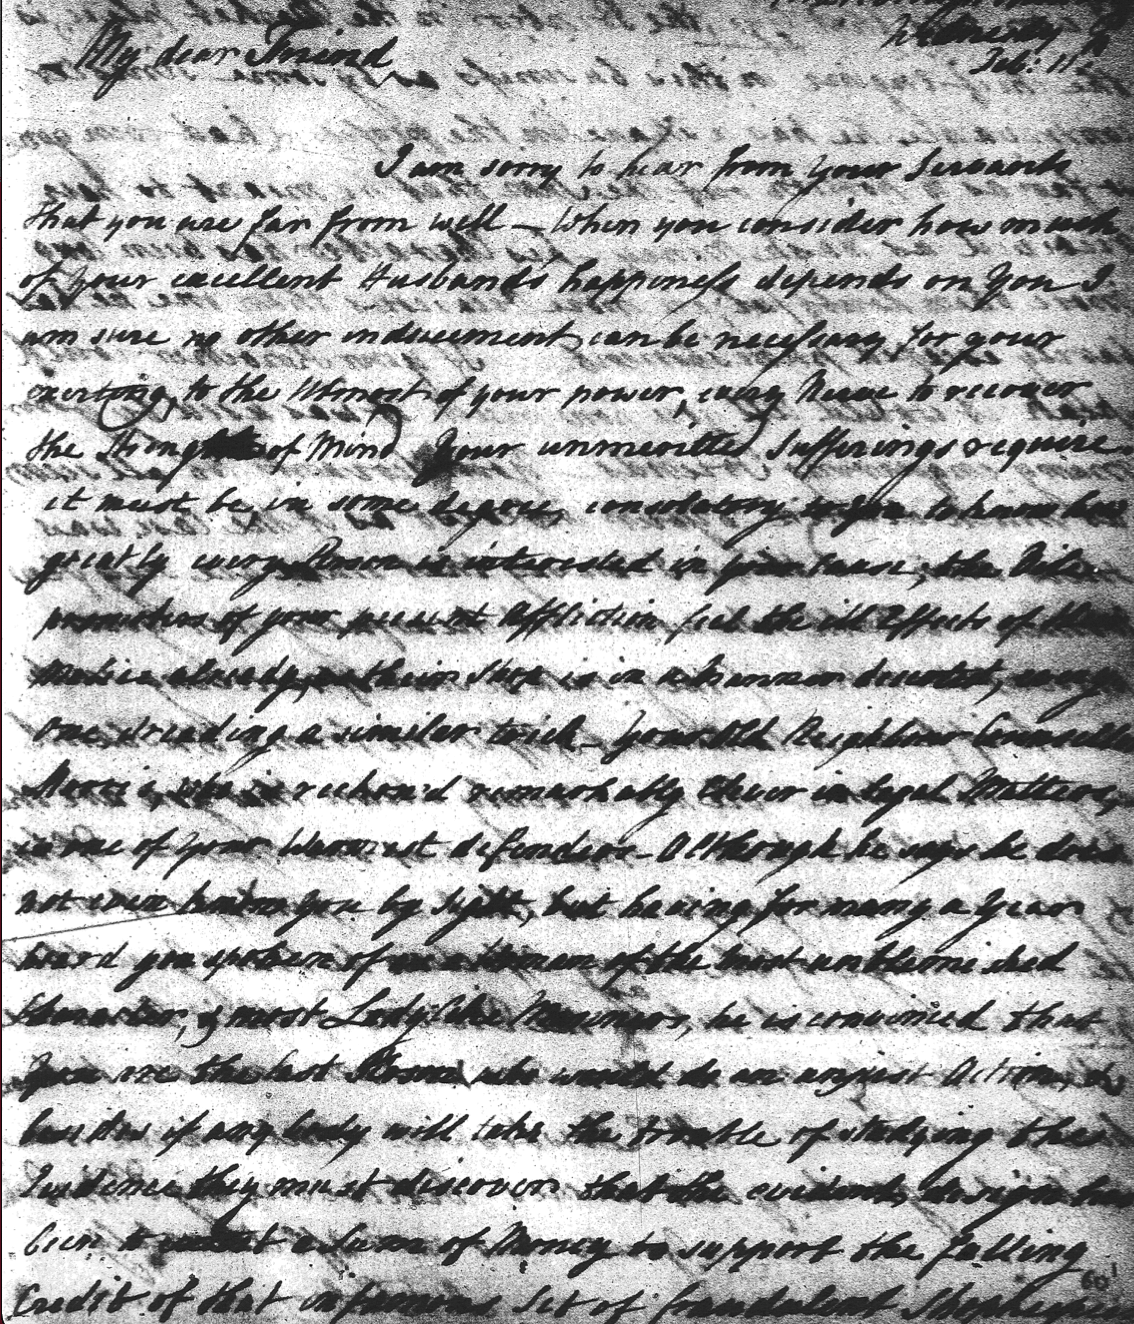 Wednesday
Feb: 11
My dear Friend
I am sorry to hear from your Servants
that you are far from well – When you consider how much
of your excellent Husband's happiness depends on You I
am sure no other inducement, can be necessary, for your
exerting, to the Utmost of your power, every Nerve to recover
the Strength of Mind your unmerited Sufferings require
it must be, in some degree, consolatory to you to know how
greatly every Person is interested in your Cause, the Vile
promoters of your present Affliction feel the ill Effects of their
malice already, as their Shop is in a manner deserted, every
one dreading a similar trick – your Old Neighbour Counsellor
Morris, who is reckon'd remarkably Clever in legal Matters,
is one of your Warmest defenders – Although he says he does
not even know you by sight, but having for many a Year
heard you spoken of as a Woman of the most unblemished
Character, & most Lady like Manners, he is convinced that
You are the last Person who would do an unjust Action, &
besides if any body will take the trouble of studying the
Evidence they must discover that the evident design has
been to a Sum of Money to support the falling
Credit of that infamous Set of fraudulent Shopkeepers
601